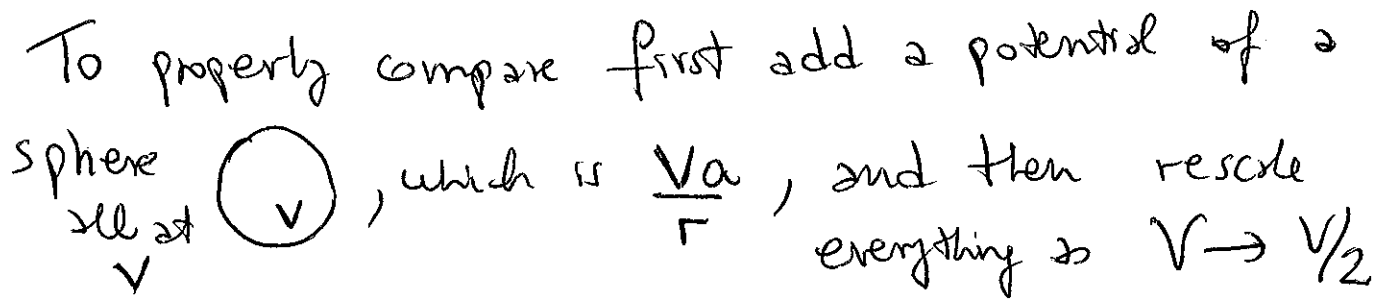 To properly compare first add a potential of a
sphere all at V (V), which is Va/r, and then rescale
everything as V → V/2